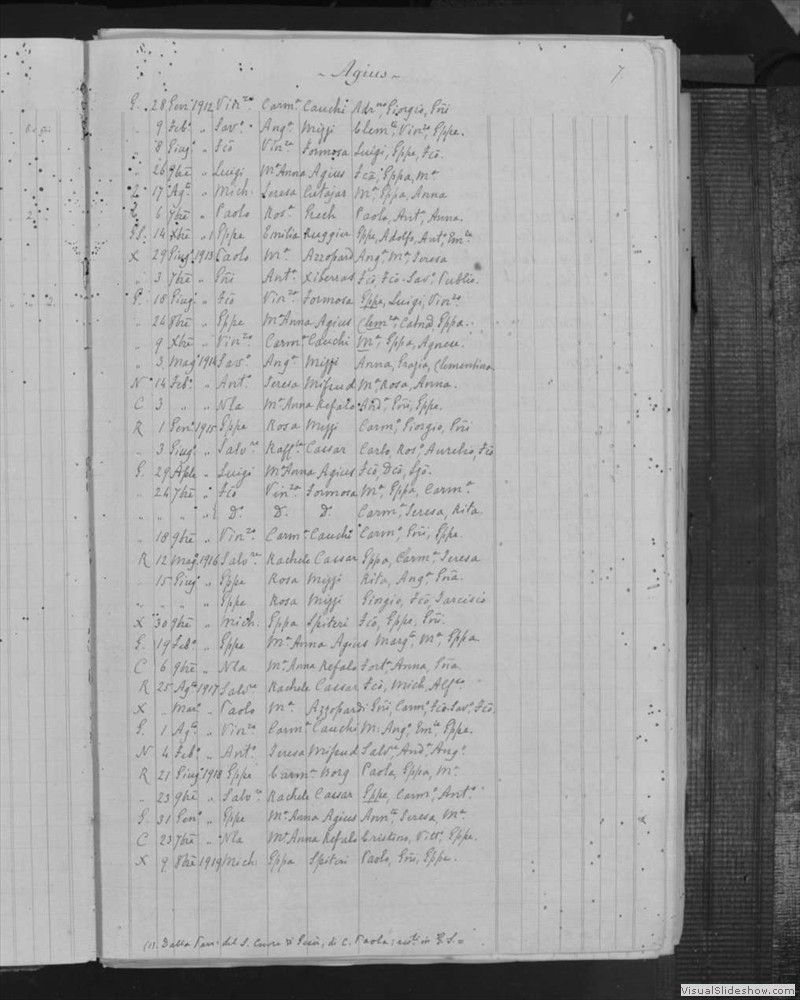 ~ Agius ~ 7.
G. 28 Genº 1912 Vinᶻᵒ Carmª Cauchi Adrⁿᵒ, Giorgio, Gñi
„ 9 Febº „ Savº Angª Mizzi Clemᵗᵉ, Vinᶻᵒ, Gppe.
„ 8 Giugº „ Fcõ Vinᶻᵃ Formosa Luigi, Gppe, Fcõ.
„ 26 9bre „ Luigi Mª Anna Agius Fcõ, Gppa, Mª
17 Agᵗᵒ „ Mich: Teresa Cutajar Mª, Gppa, Anna
6 7bre „ Paolo Rosª Grech Paola, Antª, Anna.
14 Xbre „ Gppe Emilia Ruggier Gppe, Adolfo, Antº, Emˡᵉ
X 29 Giugº 1913 Paolo Mª Azzopardi Angª, Mª, Teresa
„ 3 7bre „ Gñi Antª Xiberras Fcõ, Fcõ-Savº, Publio.
G. 18 Giugº „ Fcõ Vinᶻᵃ Formosa Gppe, Luigi, Vinᶻᵒ
„ 24 8bre „ Gppe Mª Anna Agius Clemᵃ, Catnã, Gppa.
„ 9 Xbre „ Vinᶻᵒ Carmª Cauchi Mª, Gppa, Agnese.
„ 3 Magº 1914 Savº Angª Mizzi Anna, Grazia, Clementina
N 14 Febº „ Antº Teresa Mifsud Mª Rosa, Anna.
C 3 „ „ Nla Mª Anna Refalo Andª, Gñi, Gppe.
R 1 Genº 1915 Gppe Rosa Mizzi Carmº, Giorgio, Gñi
„ 3 Giugº „ Salvʳᵉ Raffˡᵃ Cassar Carlo, Rosº, Aurelio, Fcõ
G. 29 Aple „ Luigi Mª Anna Agius Fcõ, Dcõ,
„ 24 7bre „ Fcõ Vinᶻᵃ Formosa Mª, Gppa, Carmª
„ „ „ „ D. D. D. Carmª, Teresa, Rita.
„ 18 9bre „ Vinᶻᵒ Carmª Cauchi Carmº, Gñi, Gppe.
R 12 Magº 1916 Salvʳᵉ Rachele Cassar Gppa, Carmª, Teresa
„ 15 Giugº „ Gppe Rosa Mizzi Rita, Angª, Gña.
„ „ „ „ Gppe Rosa Mizzi Giorgio, Fcõ, Tarcisio
X 30 9bre „ Mich: Gppa Spiteri Fcõ, Gppe, Gñi.
G. 19 Febº „ Gppe Mª Anna Agius Margᵗᵃ, Mª, Gppa
C 6 9bre „ Nla Mª Anna Refalo Fortª, Anna, Gña
R 25 Agᵗᵒ 1917 Salvʳᵉ Rachele Cassar Fcõ, Mich, Alfˢᵒ
X „ Marº „ Paolo Mª Azzopardi Gñi, Carmº, Fcõ Savº, Fcõ.
G. 1 Agᵗᵒ „ Vinᶻᵒ Carmª Cauchi M: Angº, Emˡᵉ, Gppe.
N 4 Febº „ Antº Teresa Mifsud Salvʳᵉ, Andª, Angº
R 21 Giugº 1918 Gppe Carmª Borg Paola, Gppa, Mª
„ 23 9bre „ Salvʳᵉ Rachele Cassar Gppe, Carmº, Antº
G. 31 Genº „ Gppe Mª Anna Agius Annᵗᵃ, Teresa, Mª
C 23 7bre „ Nla Mª Anna Refalo Cristino, Vitᵒ, Gppe.
X 9 8bre 1919 Mich: Gppa Spiteri Paolo, Gñi, Gppe.
(1). Dalla Parr: del S. Cuore di Gesù, di C. Paola:
VisualSlideshow.com